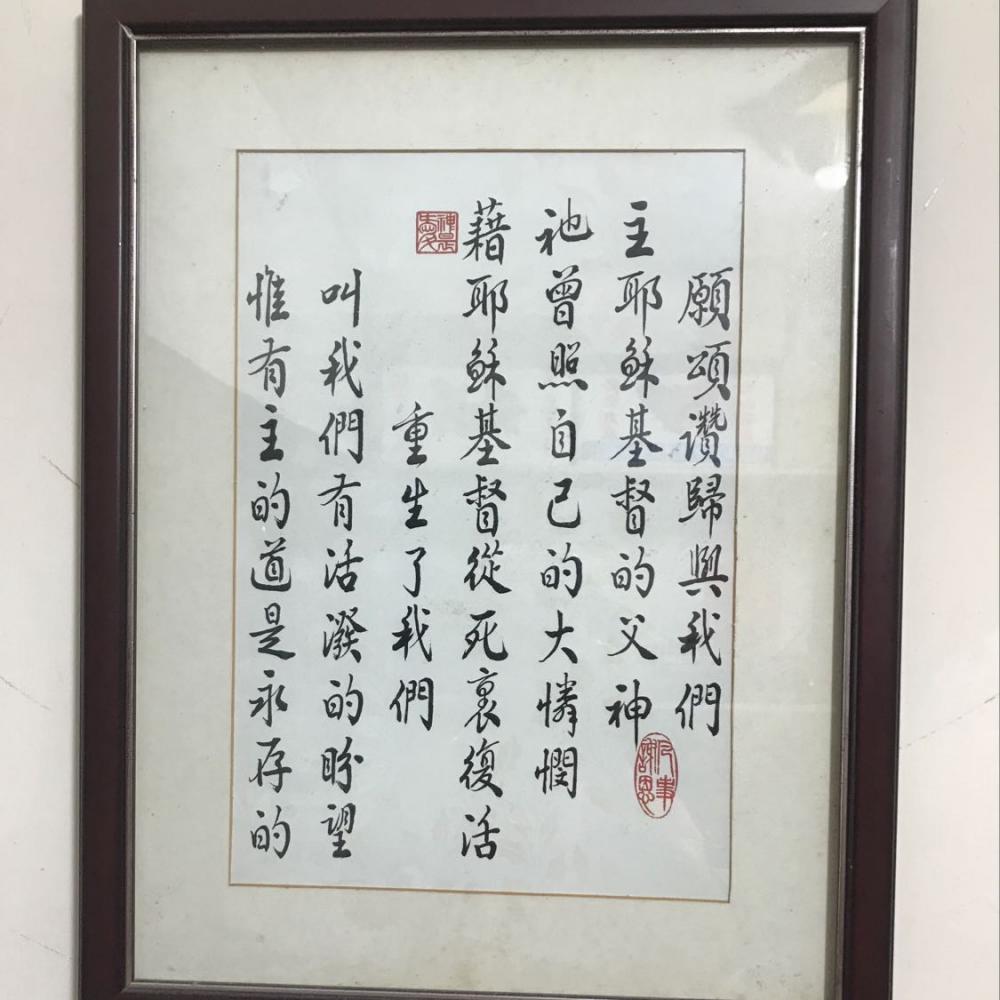 願頌讚歸與我們
主耶穌基督的父神
祂曾照自己的大憐憫
藉耶穌基督從死裏復活
重生了我們
叫我們有活潑的盼望
惟有主的道是永存的
凡事謝恩
神是愛